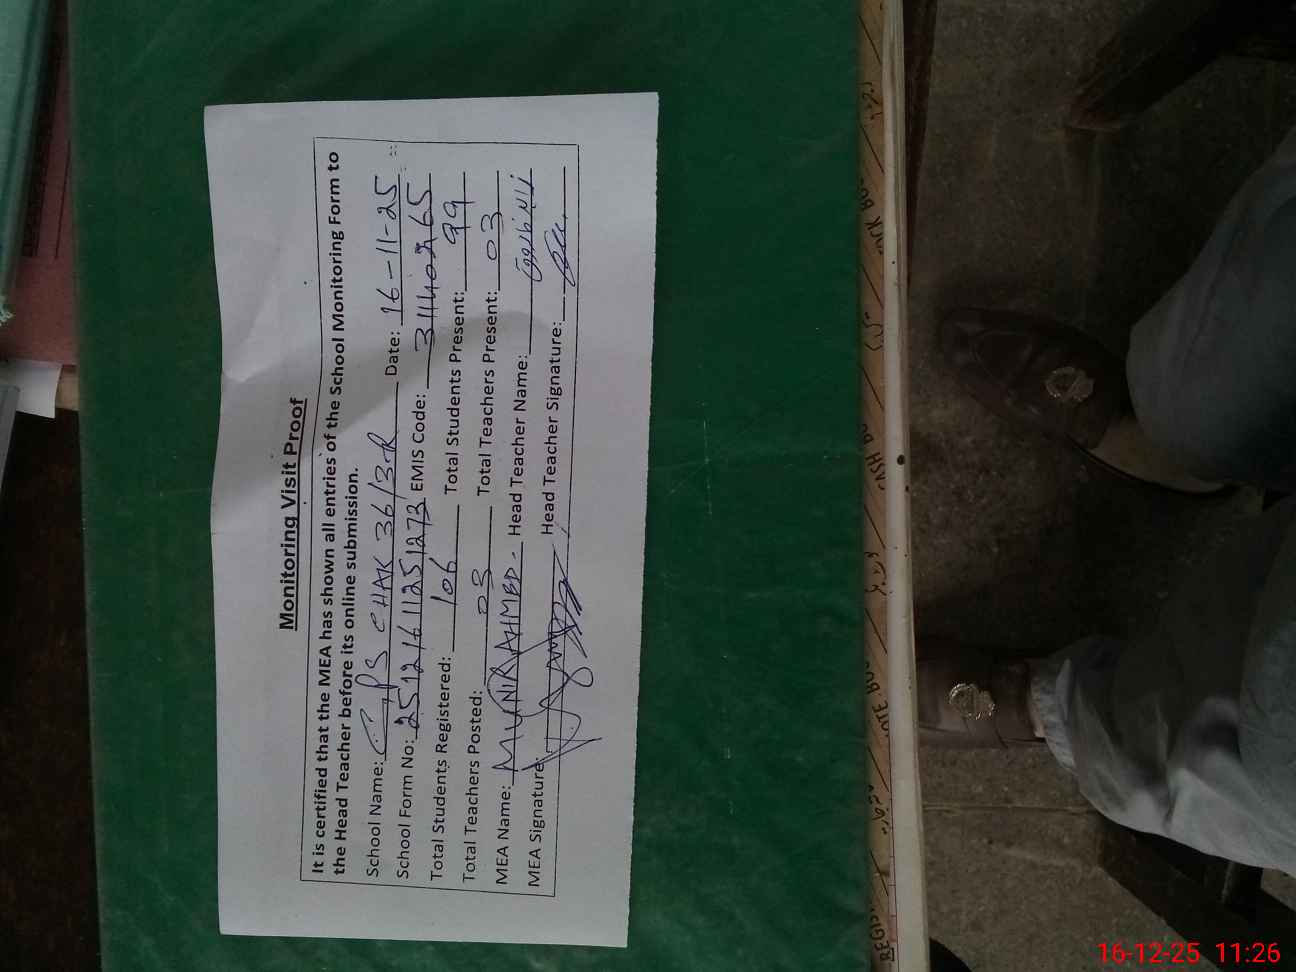 Monitoring Visit Proof
It is certified that the MEA has shown all entries of the School Monitoring Form to
the Head Teacher before its online submission.
School Name: GPS CHAK 36/3-R Date: 16-11-25
School Form No: 25121611251273 EMIS Code: 31140265
Total Students Registered: 106 Total Students Present: 99
Total Teachers Posted: 03 Total Teachers Present: 03
MEA Name: MUNIR AHMED- Head Teacher Name:
MEA Signature: Head Teacher Signature:
16-12-25 11:26